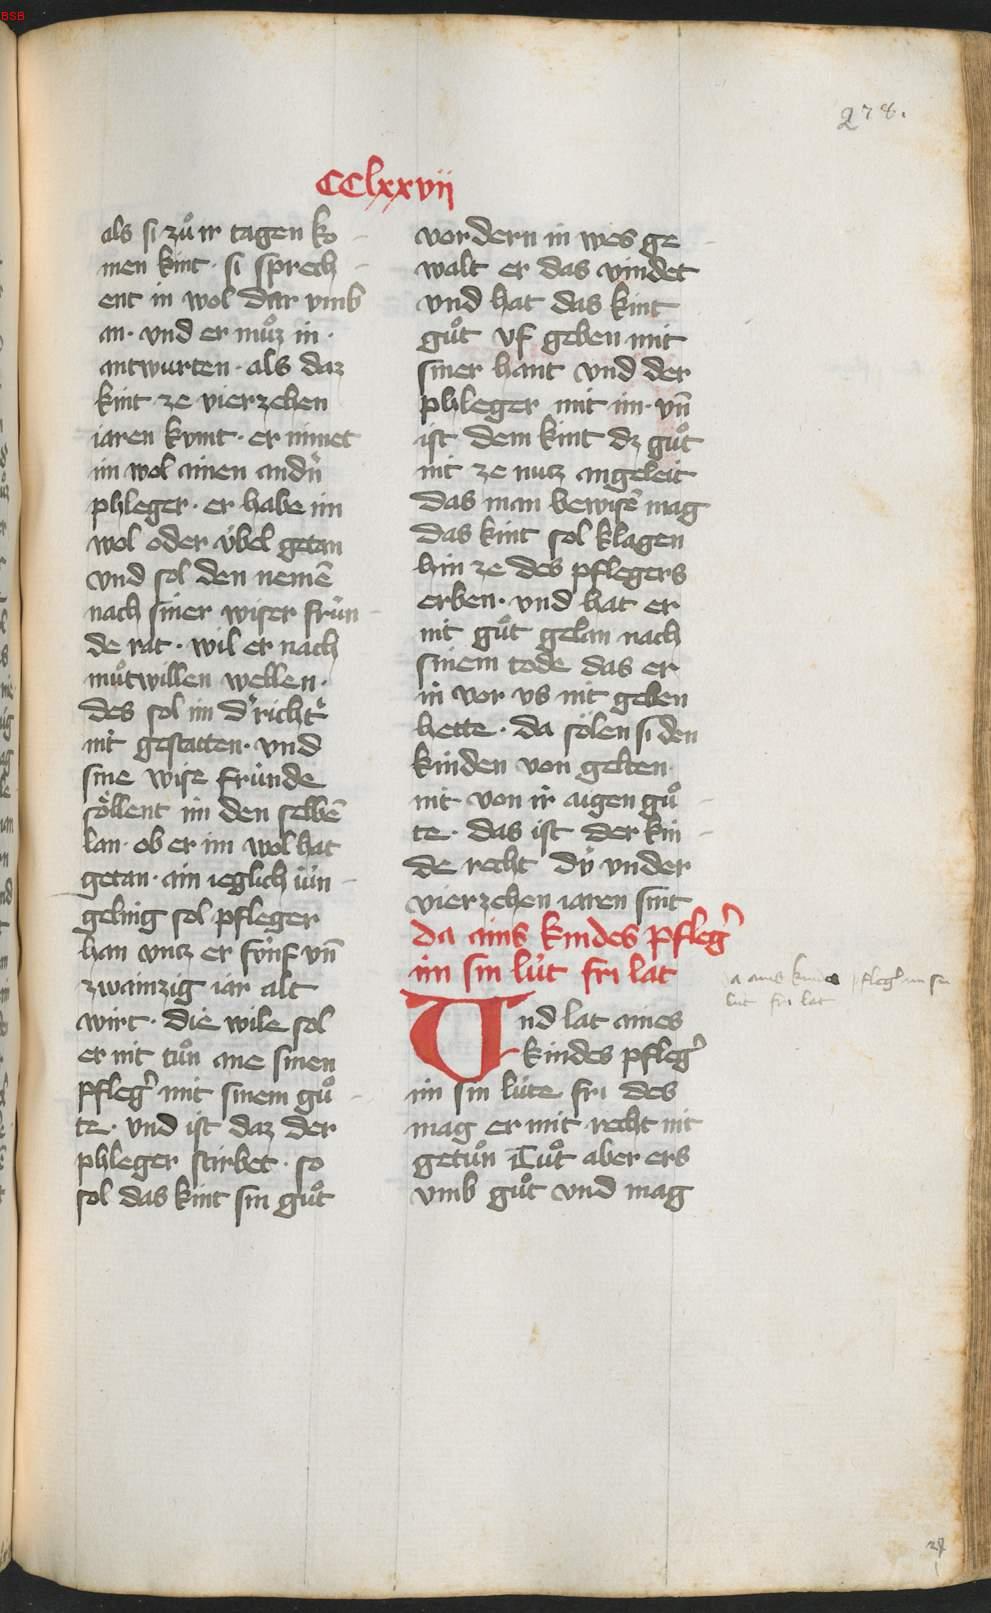 BSB
278.
CClxxvii
als si zuͦ ir tagen ko
men kint · si sprech
ent in wol dar vmb
an · vnd er muͦz in ·
antwurten · als daz
kint ze vierzehen
iaren kvmt · er nimet
im wol ainen andn̄
phleger · er habe im
wol oder v́bel getan
vnd sol den nemē
nach siner wiser frún
de rat · wil er nach
muͦtwillen wellen ·
des sol im d' richt'
nit gestatten · vnd
sine wise frúnde
soͤllent im den selbē
lan · ob er im wol hat
getan · ain ieglich iún
geling sol pfleger
han vntz er fúnf vn̄
zwainzig iar alt
wirt · die wile sol
er nit tuͦn ane sinen
pfleg' mit sinem guͦ
te · vnd ist daz der
phleger stirbet · so
sol das kint sin guͦt
vordern in wes ge
walt er das vindet
vnd hat das kint
guͦt vf geben mit
siner hant vnd der
phleger mit im · vn̄
ist dem kint dz guͦt
nit ze nutz angeleit
das man bewisē mag
das kint sol klagen
hin ze des pflegers
erben · vnd hat er
nit guͦt gelan nach
sinem tode das er
in vor vs nit geben
hette · da sölen si den
kinden von gelten
nit von ir aigen guͦ
te · das ist der kin
de recht dy vnder
vierzehen iaren sint
da ains kindes pfleg'
im sin lút fri lat
Vnd lat aines
kindes pfleg'
im sin lúte fri des
mag er mit recht nit
getuͦn Tuͦt aber ers
vmb guͦt vnd mag
a ains kindes pfleg' im sin
lut fri lat